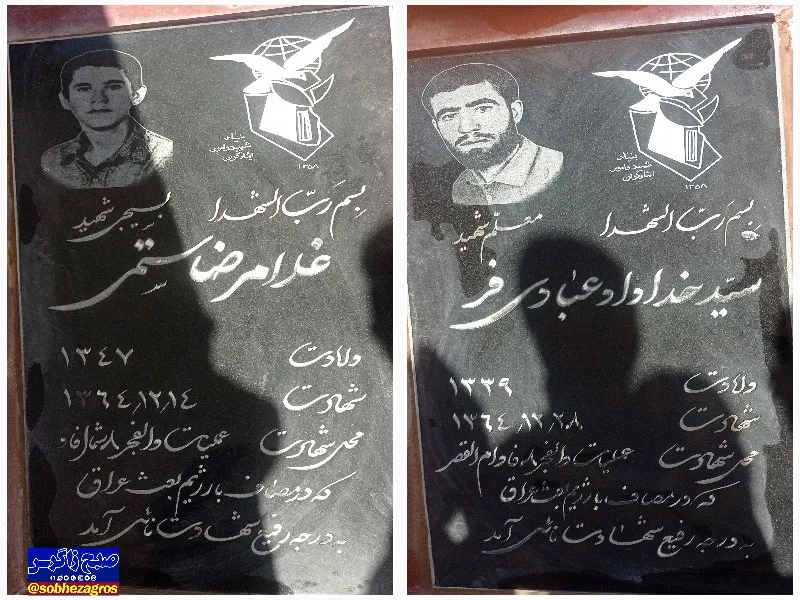 بنیاد
شهید و امور
ایثارگران
۱۳۵۸
بسم رَبّ الشهدا
بسیجی شهید
غلامرضا رستمی
ولادت ۱۳۴۷
شهادت ۱۳۶۴,۱۲,۱۴
محل شهادت عملیات والفجر ۸ شمال فاو
که در مصاف با رژیم بعث عراق
به درجه رفیع شهادت نائل آمد
صبح زاگرس
@sobhezagros
بنیاد
شهید و امور
ایثارگران
۱۳۵۸
بسم رَبّ الشهدا
معلم شهید
سیّد خداداد عبادی فر
ولادت ۱۳۳۹
شهادت ۱۳۶۴,۱۲,۲۰۸
محل شهادت عملیات والفجر ۸ فاو ام القصر
که در مصاف با رژیم بعث عراق
به درجه رفیع شهادت نائل آمد